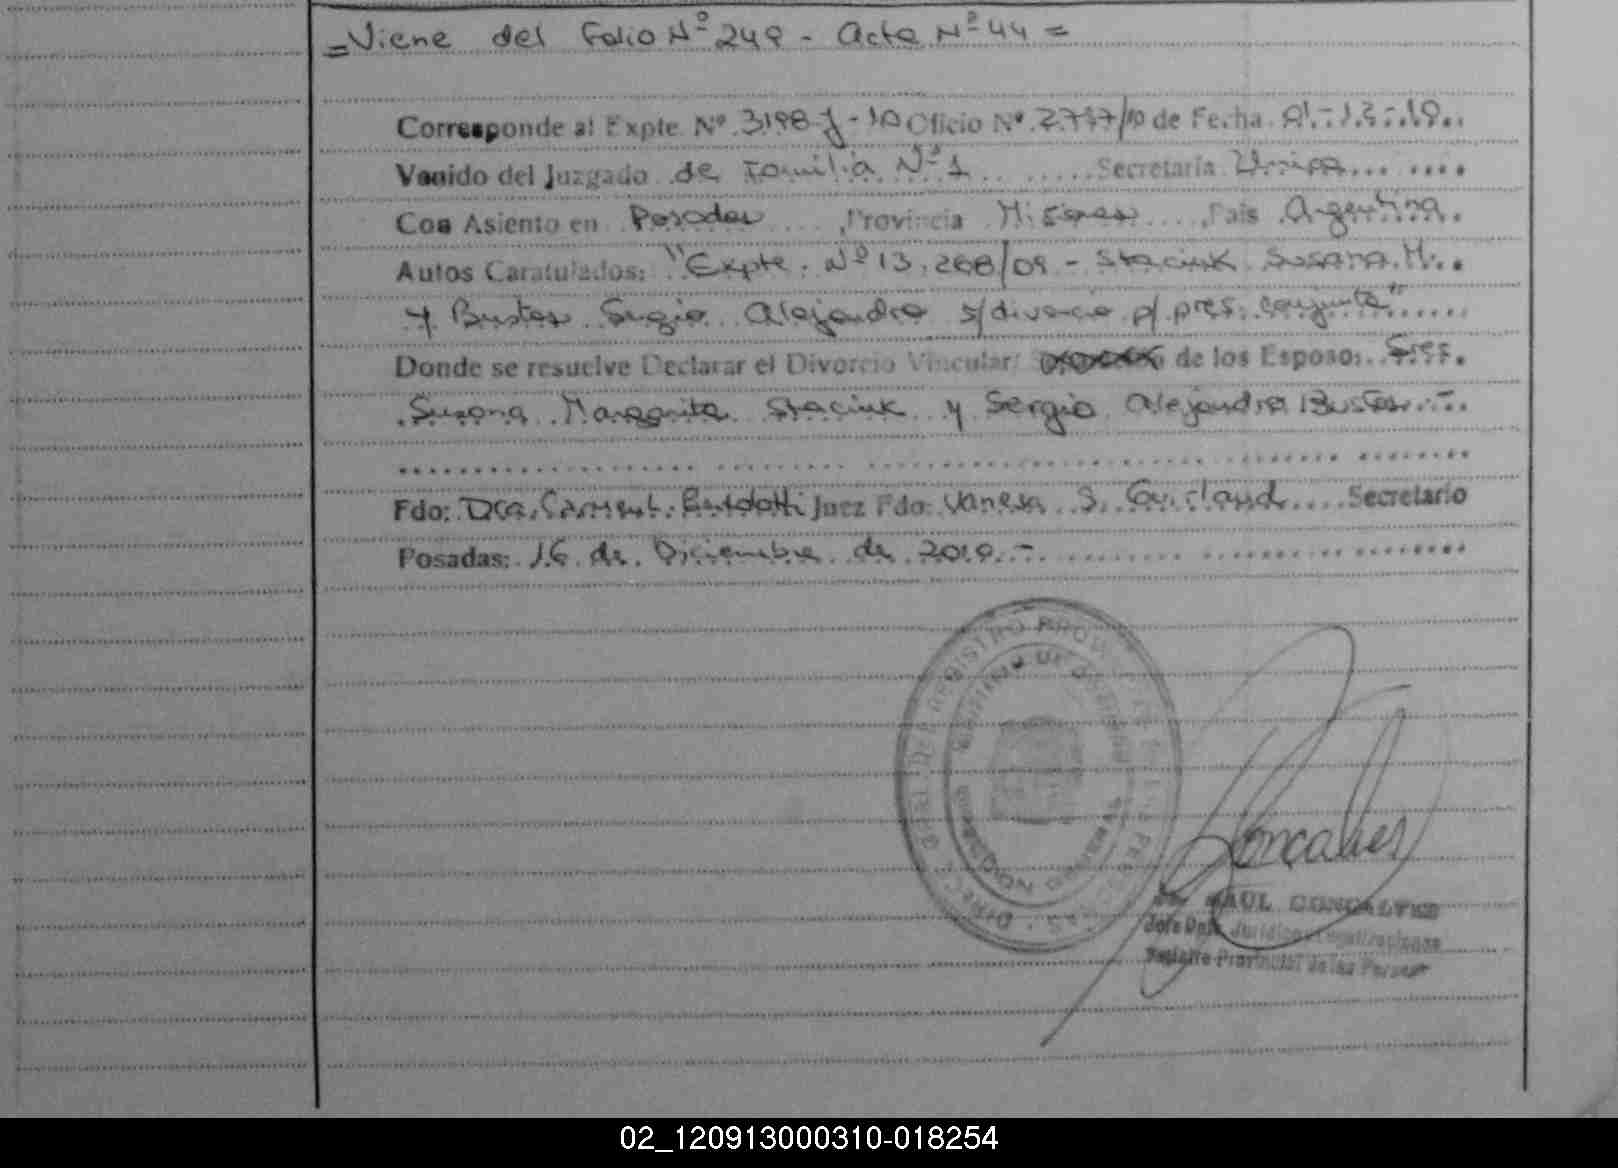 =Viene del Folio Nº 249 - Acta Nº 44 =
Corresponde al Expte. Nº 3198-J-10 Oficio Nº 2.737/10 de Fecha 01-12-10..
Venido del Juzgado de Familia Nº 1 ..... Secretaría Unica... ....
Con Asiento en Posadas ...., Provincia Misiones ...., País Argentina.
Autos Caratulados: "Expte. Nº 13.268/09 - Staciuk Susana M...
y Bustos Sergio Alejandro s/divorcio p/ pres. conjunta"......
Donde se resuelve Declarar el Divorcio Vincular/ de los Esposos: Sres.
Susana Margarita Staciuk y Sergio Alejandro Bustos.-
Fdo: Dra. Carmen L. Juez Fdo: Vanesa S. Secretario
Posadas: 16 de Diciembre de 2010.-
DIREC. GRAL. DEL REGISTRO PROV. DE LAS PERSONAS
MINISTERIO DE GOBIERNO
Goncalves
RAUL GONCALVES
Jefe Dpto. Jurídico y Legalizaciones
Registro Provincial de las Personas
02_120913000310-018254